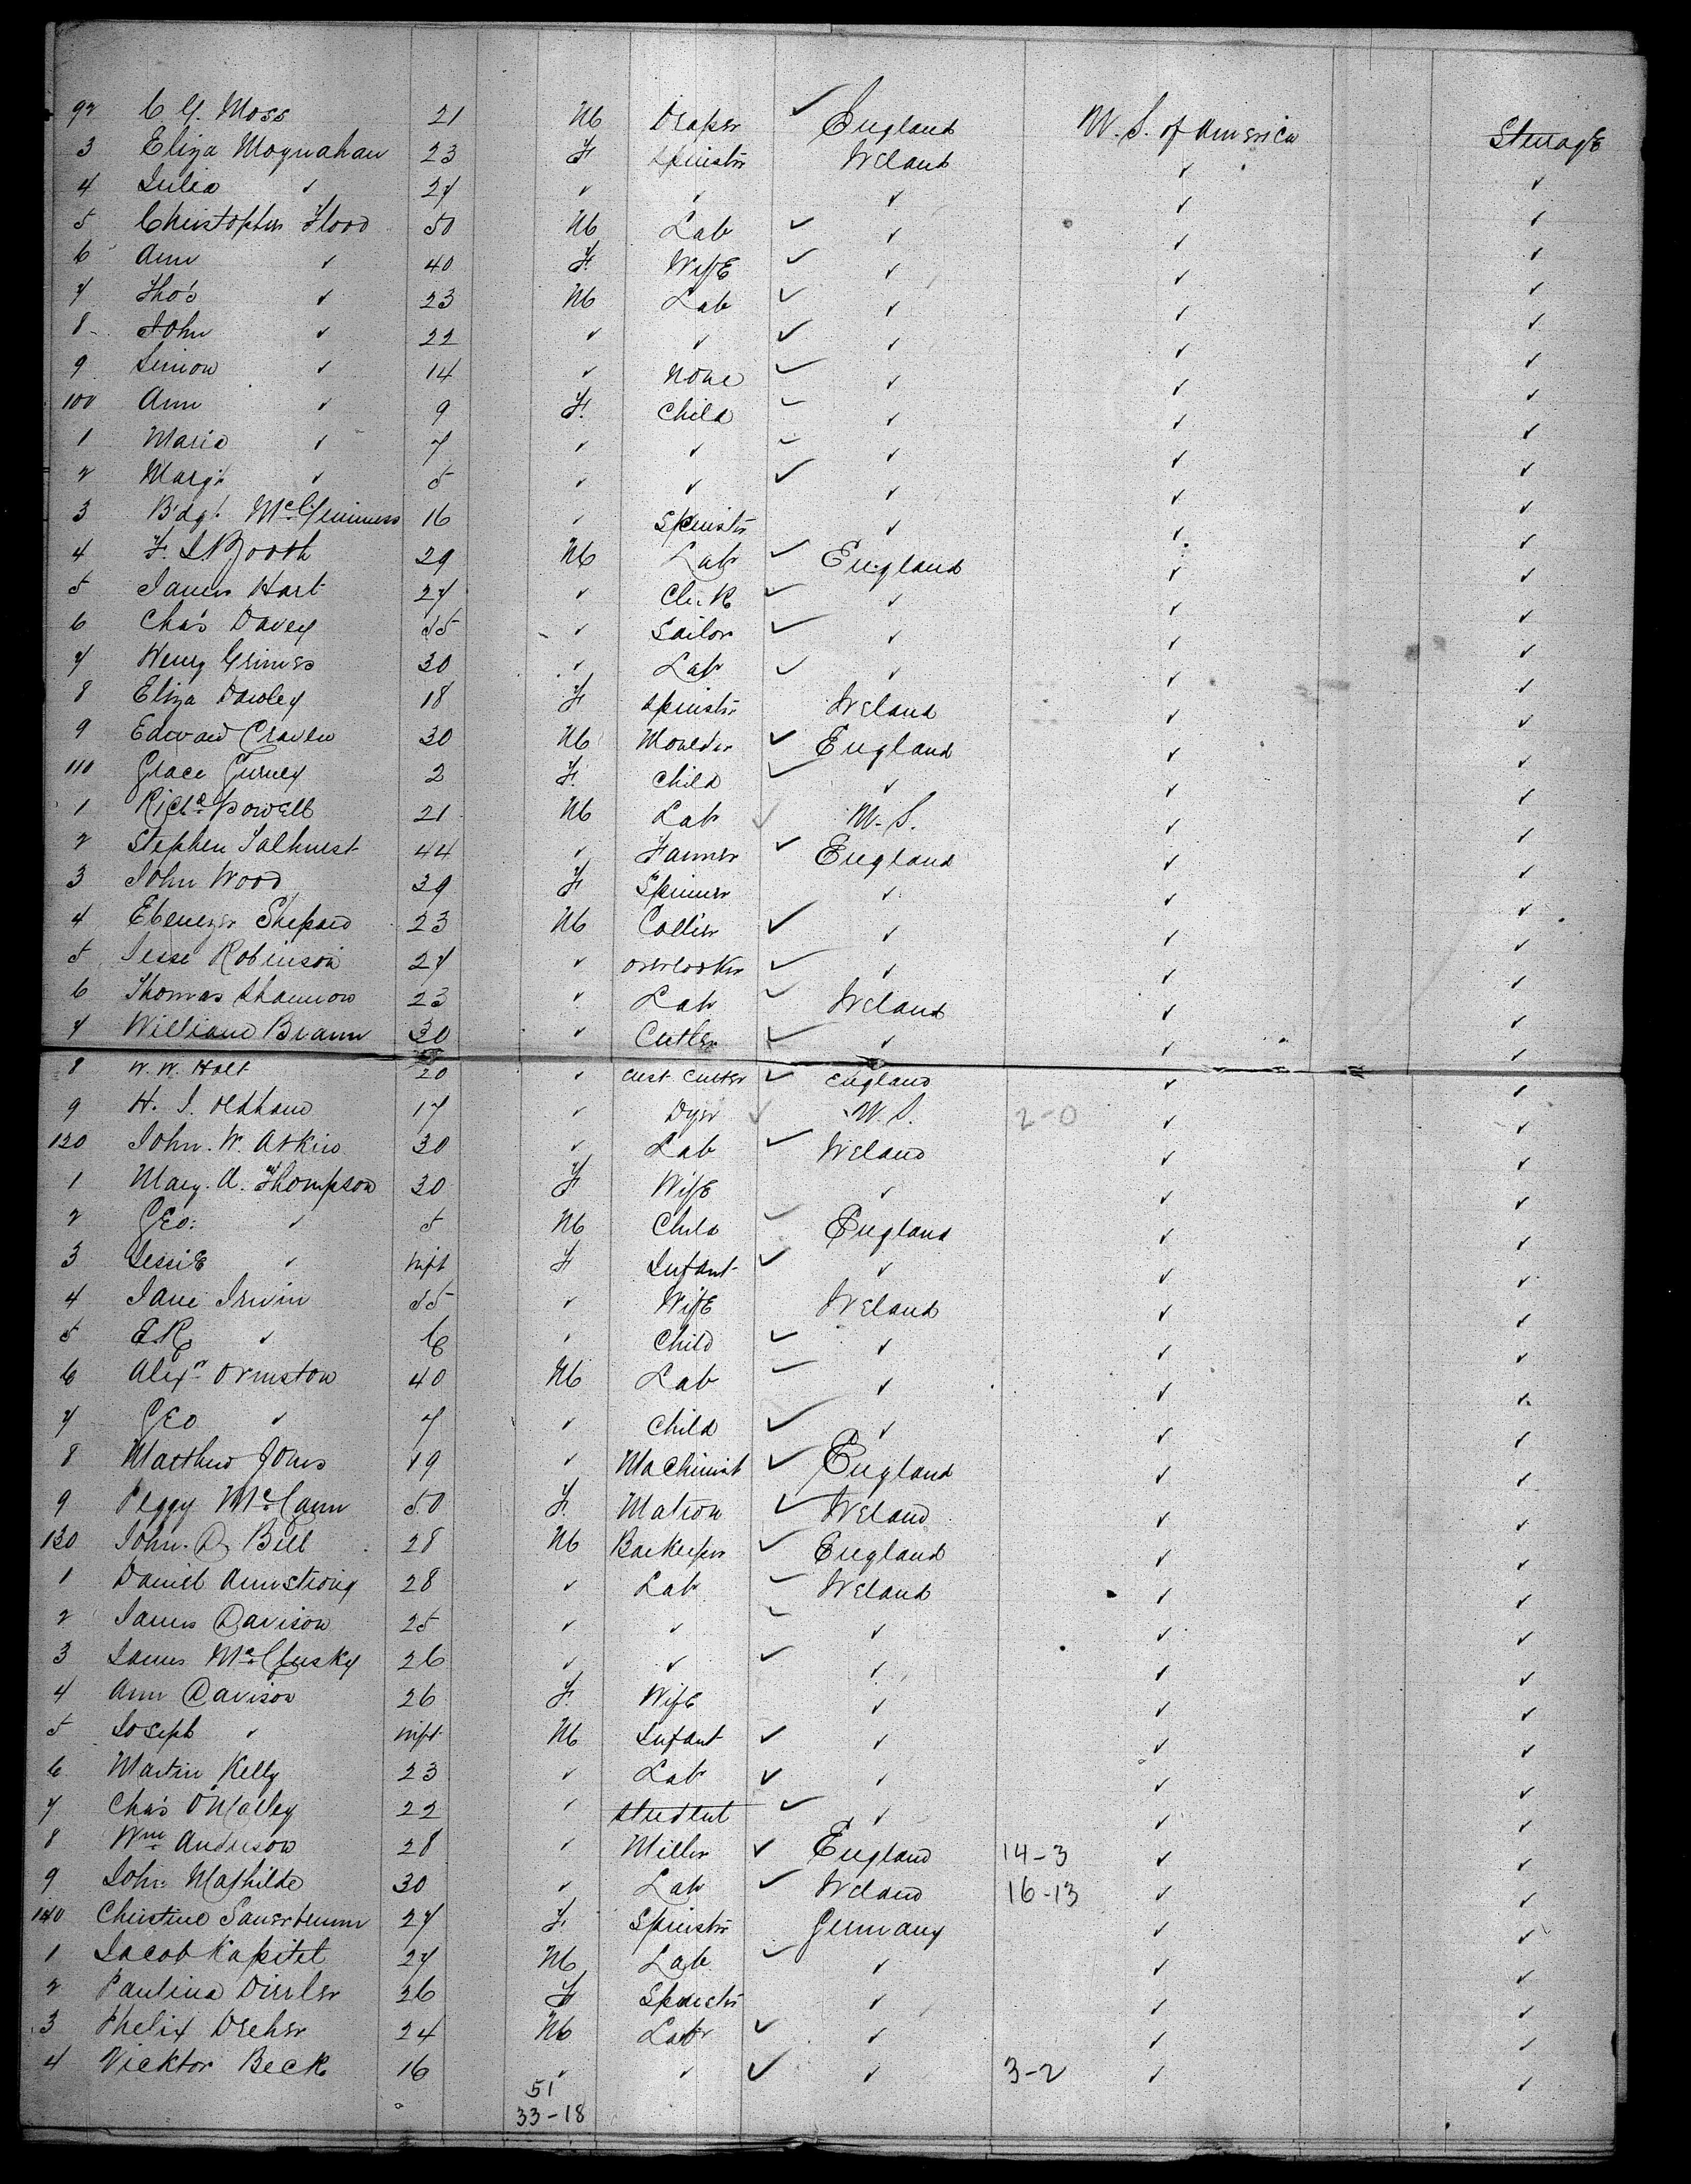 92 C G. Moss 21 M Draper ✓ England U. S. of America Steerage
3 Eliza Moynahan 23 F Spinstr Ireland ✓ ✓
4 Julia ✓ 27 ✓ ✓ ✓ ✓ ✓
5 Christopher Flood 50 M Lab ✓ ✓ ✓ ✓
6 Ann ✓ 40 F. Wife ✓ ✓ ✓ ✓
7 Tho's ✓ 23 M Lab ✓ ✓ ✓ ✓
8 John ✓ 22 ✓ ✓ ✓ ✓ ✓ ✓
9 Simon ✓ 14 ✓ None ✓ ✓ ✓ ✓
100 Ann ✓ 9 F. Child ✓ ✓ ✓ ✓
1 Maria ✓ 7 ✓ ✓ ✓ ✓ ✓ ✓
2 Margt ✓ 5 ✓ ✓ ✓ ✓ ✓ ✓
3 Bdgt. McGinness 16 ✓ Spinstr ✓ ✓ ✓
4 F. S. Booth 29 M Lab ✓ England ✓ ✓
5 James Hart 27 ✓ Clerk ✓ ✓ ✓ ✓
6 Cha's Davey 35 ✓ Sailor ✓ ✓ ✓ ✓
7 Henry Grimes 30 ✓ Lab ✓ ✓ ✓ ✓
8 Eliza Dawley 18 F Spinstr Ireland ✓ ✓
9 Edward Craven 30 M Moulder ✓ England ✓ ✓
110 Grace Gurney 2 F. Child ✓ ✓ ✓ ✓
1 Richd Powell 21 M Lab ✓ U. S. ✓ ✓
2 Stephen Talhurst 44 ✓ Farmer ✓ England ✓ ✓
3 John Wood 39 F Spinner ✓ ✓ ✓
4 Ebenezer Shepard 23 M Collier ✓ ✓ ✓ ✓
5 Jesse Robinson 27 ✓ Overlooker ✓ ✓ ✓ ✓
6 Thomas Shannon 23 ✓ Lab ✓ Ireland ✓ ✓
7 William Brann 30 ✓ Cutler ✓ ✓ ✓ ✓
8 W. W. Holt 20 ✓ Cutter ✓ England ✓ ✓
9 H. J. Oldham 17 ✓ Dyer ✓ U. S. 2-0 ✓ ✓
120 John. W. Atkins 30 ✓ Lab ✓ Ireland ✓ ✓
1 Mary. A. Thompson 30 F Wife ✓ ✓ ✓
2 Geo: ✓ 5 M Child ✓ England ✓ ✓
3 Jessie ✓ inft F Infant ✓ ✓ ✓ ✓
4 Jane Irwin 35 ✓ Wife Ireland ✓ ✓
5 ✓ 6 ✓ Child ✓ ✓ ✓ ✓
6 Alexr Ormston 40 M Lab ✓ ✓ ✓ ✓
7 Geo ✓ 7 ✓ Child ✓ ✓ ✓ ✓
8 Matthew Jones 19 ✓ Machinist ✓ England ✓ ✓
9 Peggy McCann 50 F. Matron ✓ Ireland ✓ ✓
130 John. D. Bell 28 M Barkeeper ✓ England ✓ ✓
1 Daniel Armstrong 28 ✓ Lab ✓ Ireland ✓ ✓
2 James Davison 25 ✓ ✓ ✓ ✓ ✓ ✓
3 James McClusky 26 ✓ ✓ ✓ ✓ ✓ ✓
4 Ann Davison 26 F. Wife ✓ ✓ ✓
5 Joseph ✓ inft M Infant ✓ ✓ ✓ ✓
6 Martin Kelly 23 ✓ Lab ✓ ✓ ✓ ✓
7 Cha's O'Malley 22 ✓ Student ✓ ✓ ✓ ✓
8 Wm Anderson 28 ✓ Miller ✓ England 14-3 ✓ ✓
9 John Mathilde 30 ✓ Lab ✓ Ireland 16-13 ✓ ✓
140 Christine Sauerbrunn 27 F. Spinstr Germany ✓ ✓
1 Jacob Kapitel 27 M Lab ✓ ✓ ✓ ✓
2 Paulina Dierler 26 F Spinstr ✓ ✓ ✓
3 Phelix Dreher 24 M Lab ✓ ✓ ✓ ✓
4 Vicktor Beck 16 ✓ ✓ ✓ ✓ 3-2 ✓ ✓
51
33-18